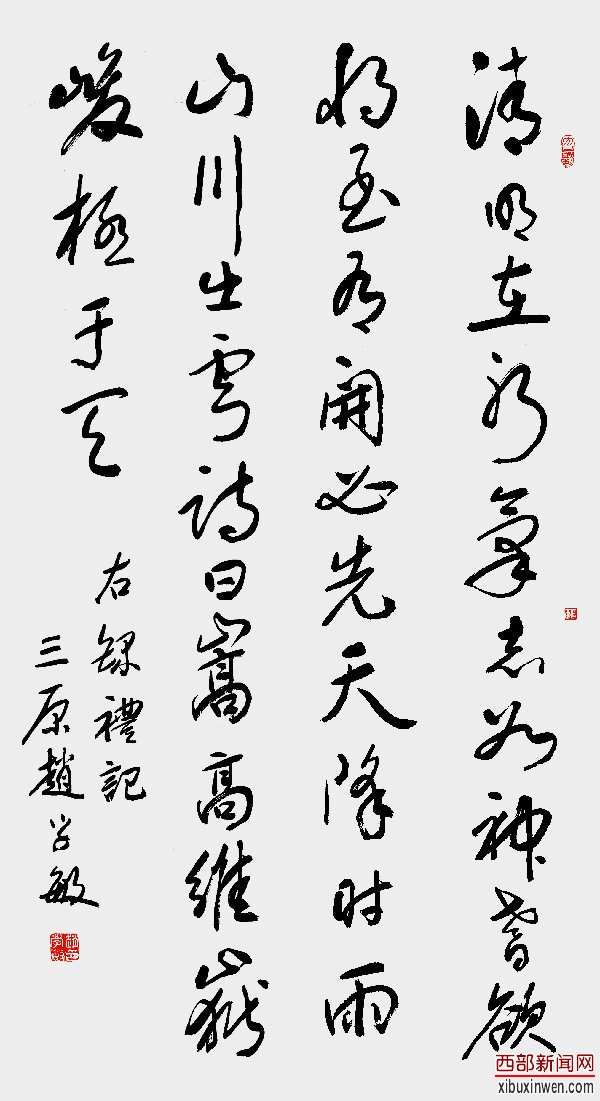 清明在躬氣志如神耆欲
将至有開必先天降时雨
山川出雲詩曰嵩高維嶽
峻極于天
右録禮記
三原趙学敏
西部新闻网
xibuxinwen.com